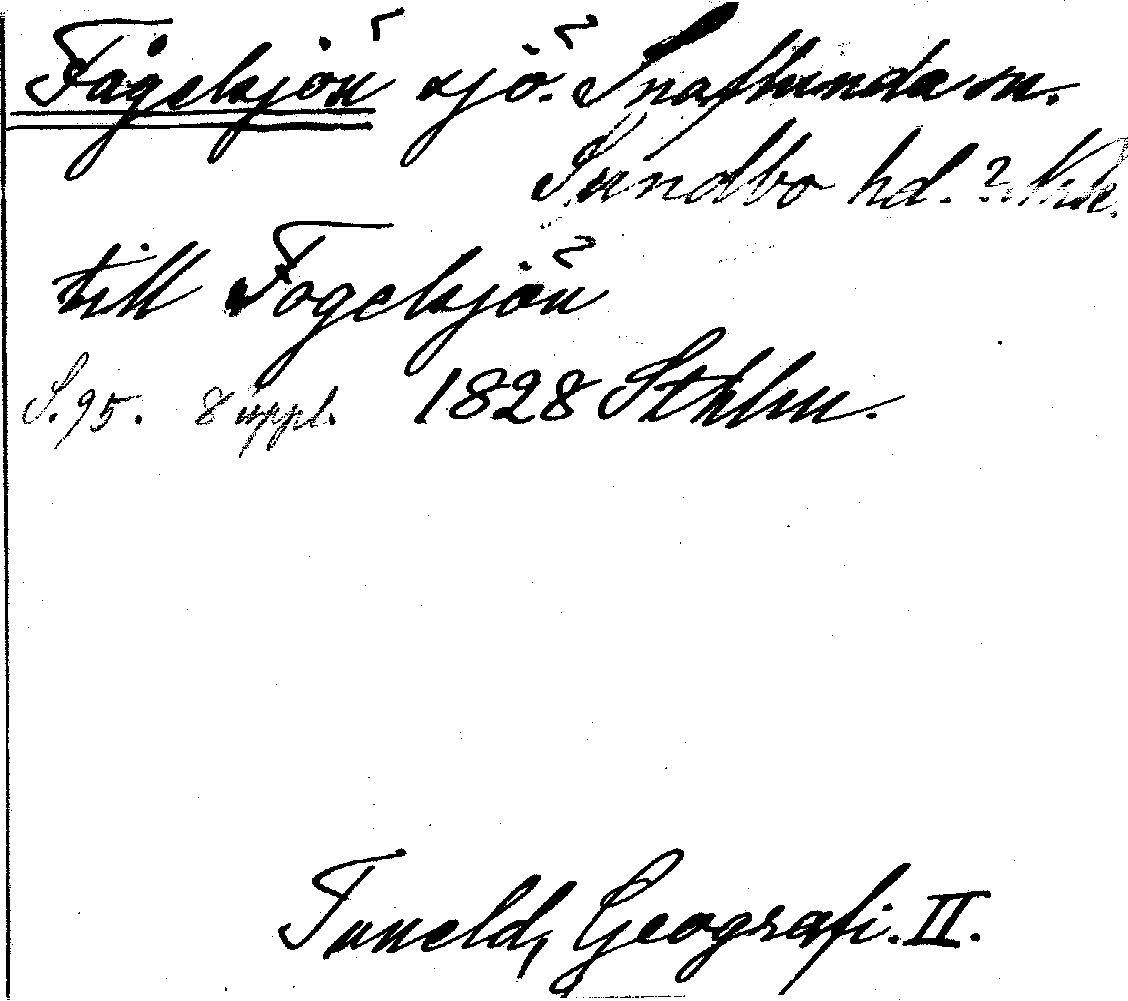 Fågelsjön sjö. Snaflunda sn.
Sundbo hd. ? Nrk.
till Fogelsjön
S. 95. 8 uppl. 1828 Sthlm.
Tuneld, Geografi. II.